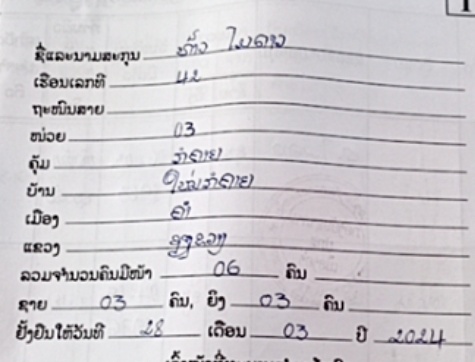 ຊື່ແລະນາມສະກຸນ ທ້າວ ໄມລາວ
ເຮືອນເລກທີ 42
ຖະໜົນສາຍ
ໜ່ວຍ 03
ຄຸ້ມ ກໍຄາຍ
ບ້ານ ໃໝ່ກໍຄາຍ
ເມືອງ ຄຳ
ແຂວງ ຊຽງຂວາງ
ລວມຈຳນວນຄົນມີໜ້າ 06 ຄົນ
ຊາຍ 03 ຄົນ, ຍິງ 03 ຄົນ
ຢັ້ງຢືນໃຫ້ວັນທີ 28 ເດືອນ 03 ປີ 2024